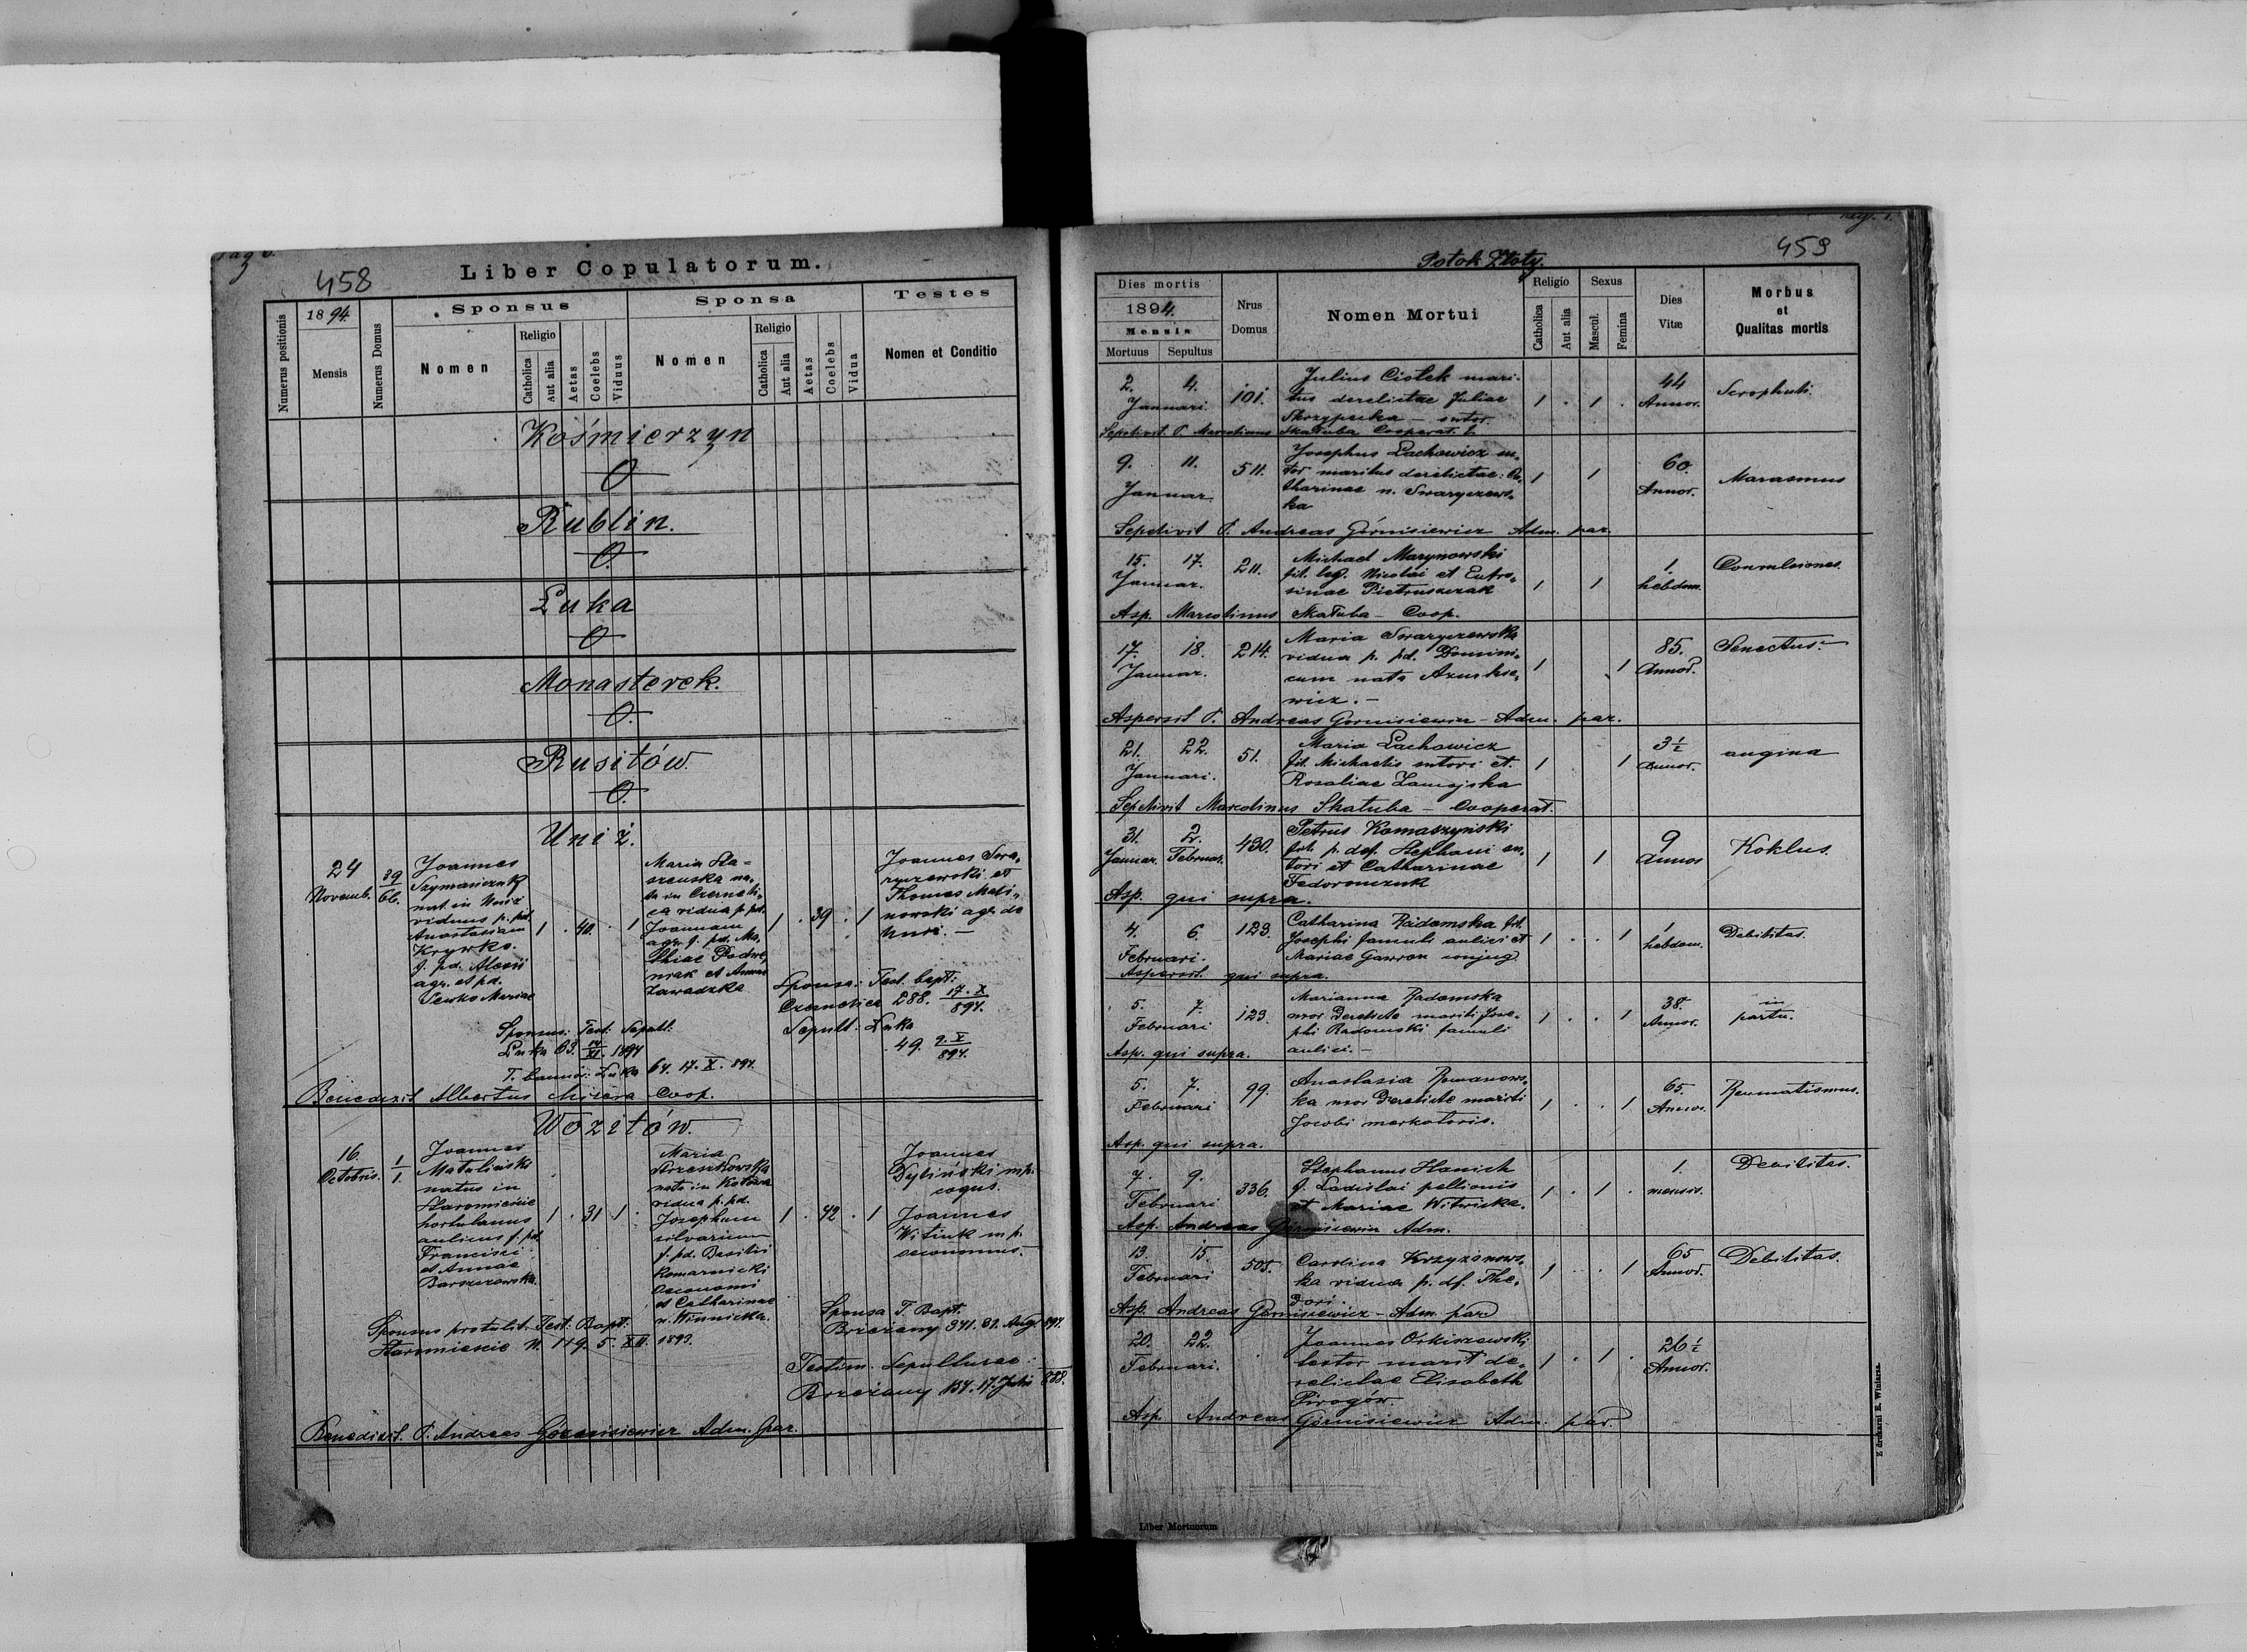 458
Liber Copulatorum.
Numerus positionis
1894.
Mensis
Numerus Domus
Sponsus
Nomen
Religio
Catholica
Aut alia
Aetas
Coelebs
Viduus
Sponsa
Nomen
Religio
Catholica
Aut alia
Aetas
Coelebs
Vidua
Testes
Nomen et Conditio
Kośmierzyn
0
Rublin.
0.
Łuka
0
Monasterek.
0.
Rusiłów.
0.
Uniż.
24
Novemb.
39
66.
Joannes
Szymańczuk
nat. in Uniż
viduus p. pd.
Anastasiam
Krywko.
f. pd. Alexii
agr. et pd.
Senko Mariae
1 . 40. . 1
Maria
nata in Czerneli-
ca vidua p. pd.
Joannem
agr. f. pd. Ma-
thiae
et Annae
Zawadzka
1 . 39 . 1
Joannes Swa-
ryczewski et
Thomas Mali-
nowski agr. de
Uniż. —
Sponsa: Test. bapt:
Czernelica 288. 17. X
894.
Sepult: Łuka
49. 2. X
894.
Sponsus: Test: Sepult:
Łuka 63. XI. 1894
T. bannor: Łuka 64. 17. X. 894.
Benedixit Albertus Coop.
Woziłów.
16.
Octobris.
1
1.
Joannes
natus in
Staromieście
hortulanus
aulicus f. pd.
Francisci
et Annae
Barszczewska.
1 . 31 1 .
Maria
nata in
vidua p. pd.
Josephum
silvarium
f. pd. Basilii
Komarnicki
oeconomi
et Catharinae
n. Winnicka.
1 . 42 . 1
Joannes
Dyliński mp.
coqus.
Joannes
Witiuk mp.
oeconomus.
Sponsus protulit Test: Bapt:
Staromieście N. 119. 5. XII. 1893.
Sponsa T. Bapt.
Brzeżany 341. 31. Aug. 894.
Testim. Sepulturae:
Brzeżany 134. 17. Julii 888.
Benedixit. P. Andreas Górnisiewicz Adm. par.
459
Potok Złoty.
Dies mortis
1894.
Mensis
Mortuus
Sepultus
Nrus
Domus
Nomen Mortui
Religio
Catholica
Aut alia
Sexus
Mascul.
Femina
Dies
Vitæ
Morbus
et
Qualitas mortis
2. 4.
Januari.
101.
Julius Ciołek mari-
tus derelictae Juliae
Skrzypecka — sutor.
1 . 1 .
44
Annor.
Scrophuli.
Sepelivit P. Marcelinus Skałuba Cooperat. L.
9. 11.
Januar.
511.
Josephus Lachowicz su-
tor maritus derelictae: Ca-
tharinae n. Swaryczews-
ka
1 1
60.
Annor.
Marasmus
Sepelivit P. Andreas Górnisiewicz Adm. par.
15. 17.
Januar.
211.
Michael Marynowski
fil. leg. Nicolai et Eufro-
sinae Pietruszczak
1 1
1.
hebdom.
Convulsiones.
Asp. Marcelinus Skałuba — Coop.
17. 18.
Januar.
214.
Maria Swaryczewska
vidua p. pd. Domini-
cum nata
wicz. —
1 1
85.
Annor.
Senectus.
Aspersit P. Andreas Gornisiewicz — Adm. par.
21. 22.
Januari.
51.
Maria Lachowicz
fil. Michaelis sutori et
Rosaliae Zamojska
1 1
3½
Annor.
angina
Sepelivit Marcelinus Skałuba — Cooperat.
31. 2.
Januar. Februar.
430.
Petrus Komaszyński
fil. p. def. Stephani su-
tori et Catharinae
Fedoronczuk
1 1
9
Annos
Koklus.
Asp. qui supra.
4. 6.
Februari.
123.
Catharina Radomska fil.
Josephi famuli aulici et
Mariae Gawron conjug.
1 . . 1
1
hebdom.
Debilitas.
Aspersit. qui supra.
5. 7.
Februari
123.
Marianna Radomska
uxor derelicte mariti Jose-
phi Radomski famuli
aulici. —
1 . . 1
38.
Annor.
in
partu.
Asp. qui supra.
5. 7.
Februari
99.
Anastasia Romanows-
ka uxor derelicte mariti
Jacobi merkatoris.
1 . . 1
65.
Annor.
Reumatismus.
Asp. qui supra.
7. 9.
Februari
336.
Stephanus Hanich
f. Ladislai pellionis
et Mariae Witwicka.
1 . 1 .
1.
mensis.
Debilitas.
Asp. Andreas Górnisiewicz Adm.
13. 15.
Februari
505.
Carolina Krzyżanows-
ka vidua p. df. Theo-
dori.
1 . . 1
65
Annor.
Debilitas.
Asp. Andreas Górnisiewicz — Adm. par
20. 22.
Februari.
Joannes Orkiszewski
marit de-
relictae Elisabeth
Pirogów.
1 . 1 .
26½
Annor.
Asp. Andreas Górnisiewicz Adm. par.
Z drukarni E. Winiarza.
Liber Mortuorum